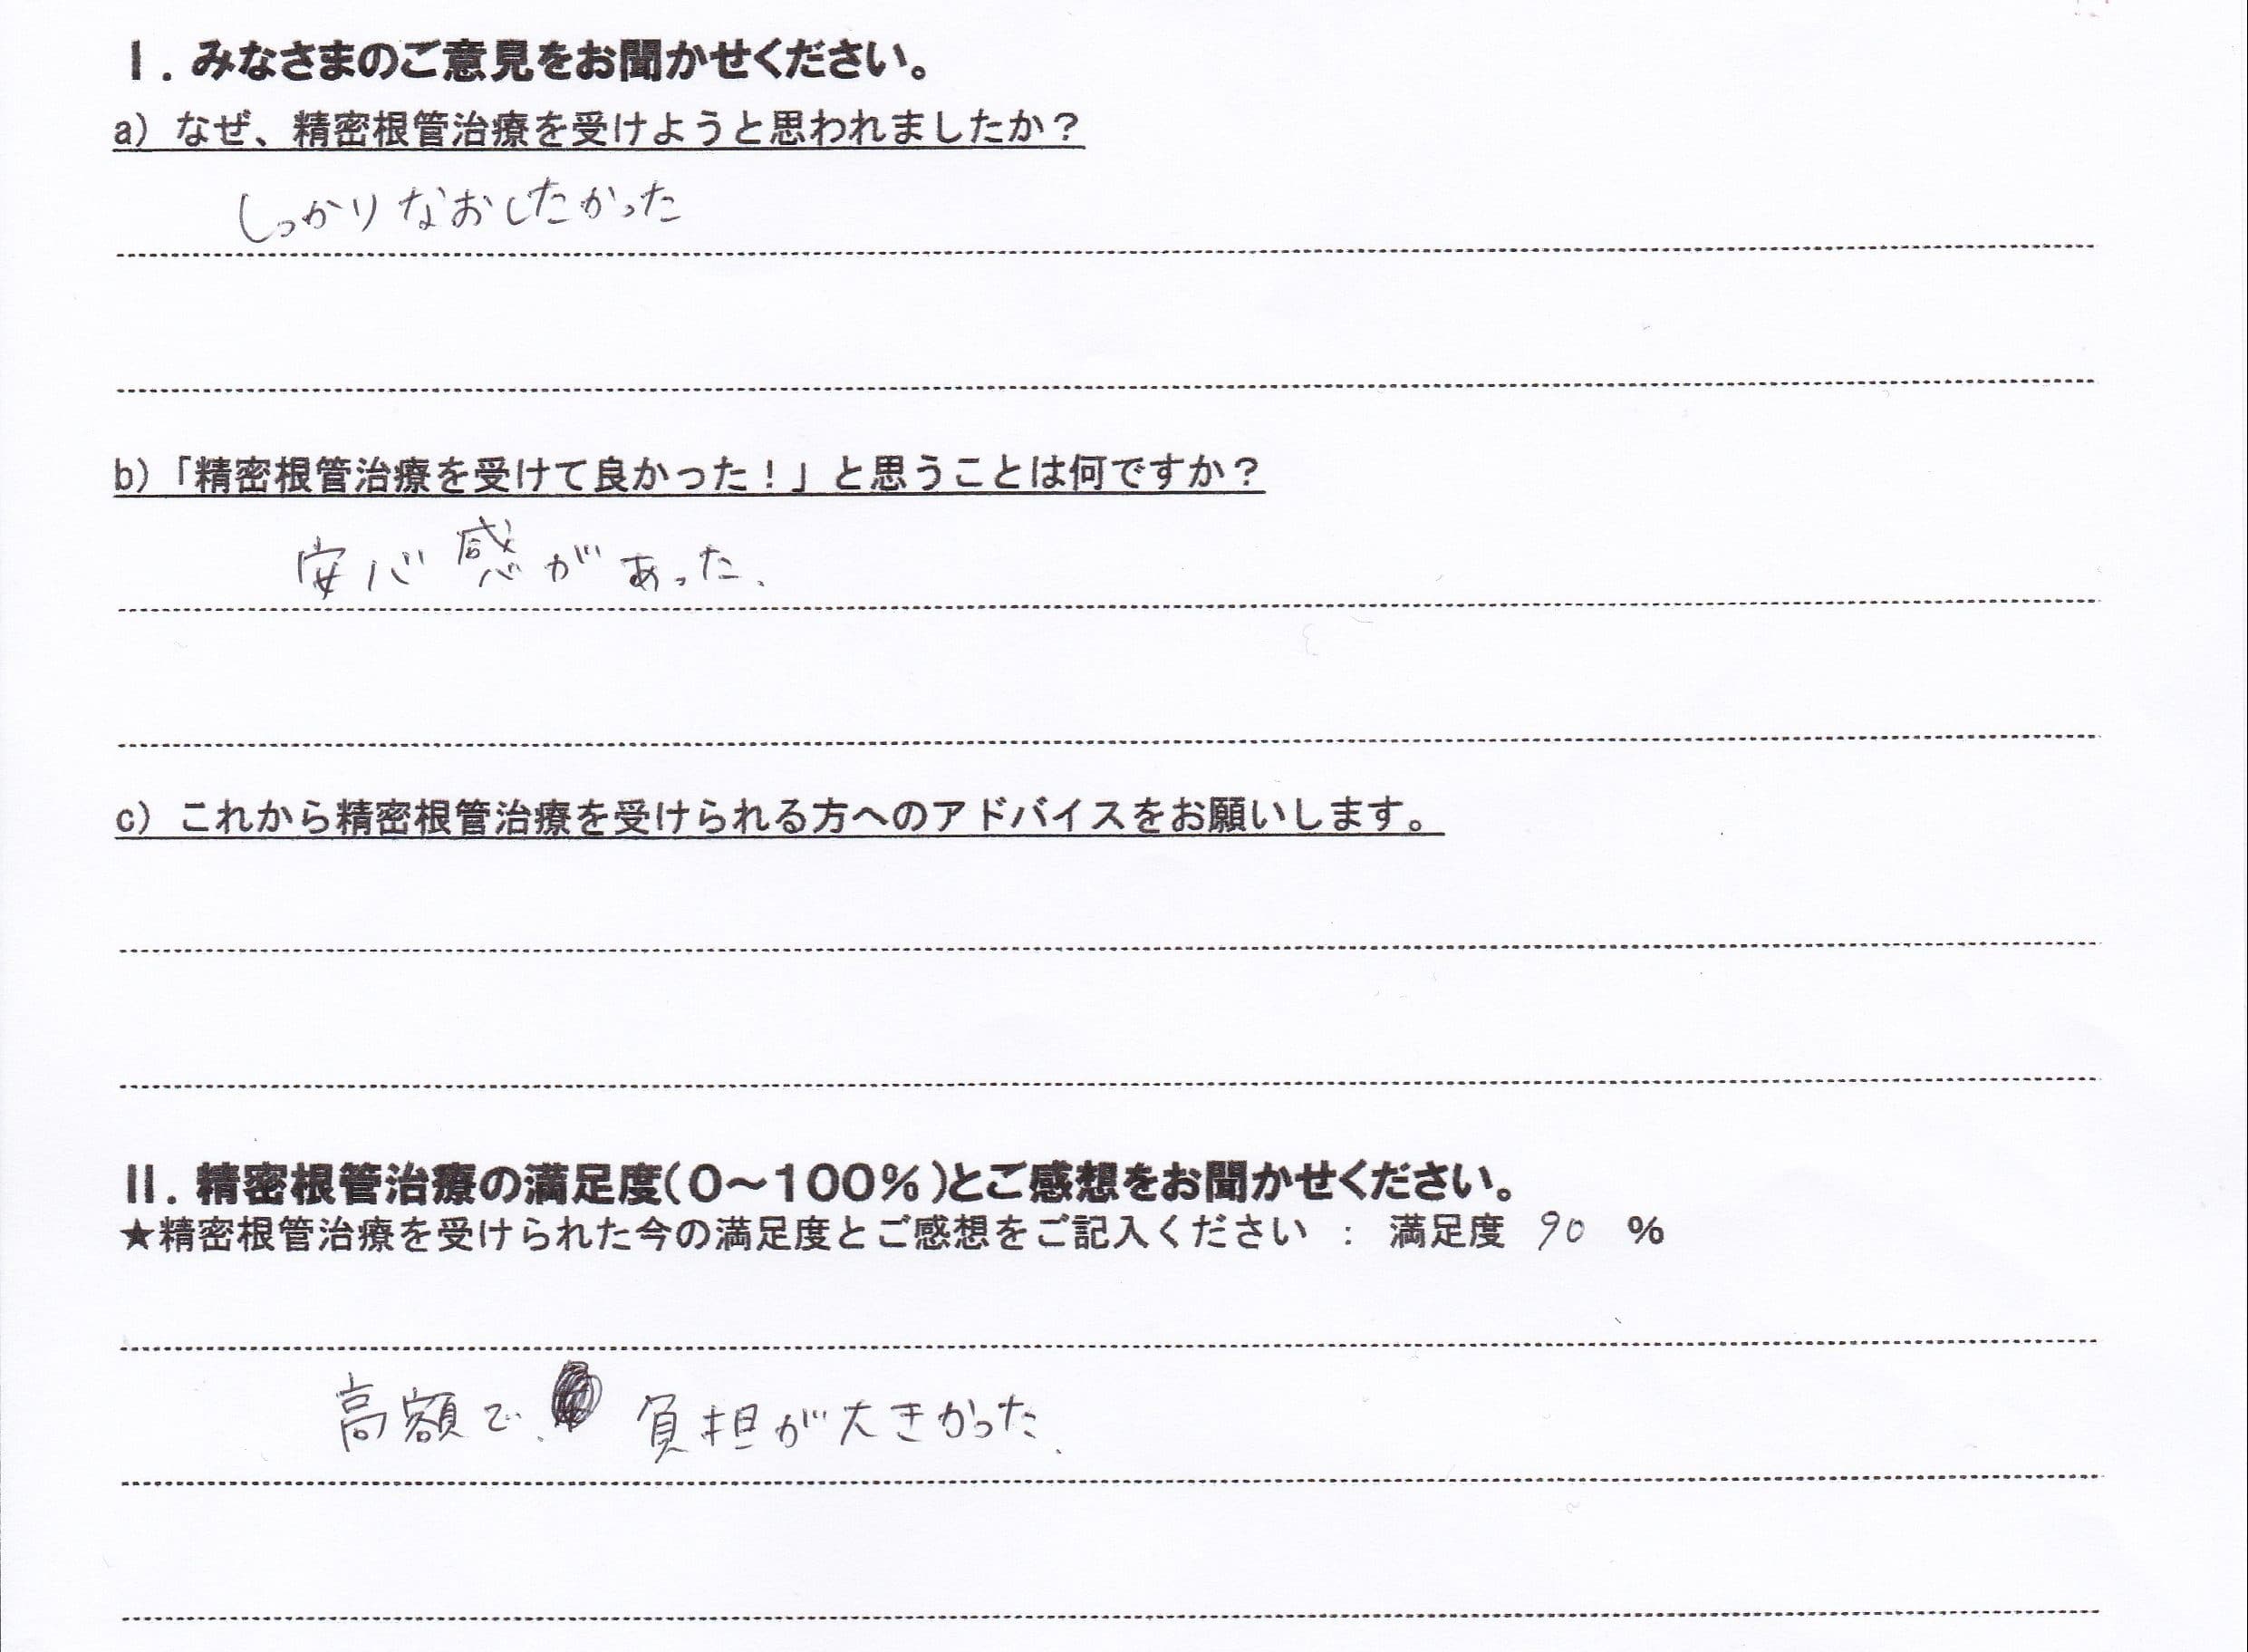 I. みなさまのご意見をお聞かせください。
a) なぜ、精密根管治療を受けようと思われましたか？
しっかりなおしたかった
b)「精密根管治療を受けて良かった！」と思うことは何ですか？
安心感があった.
c) これから精密根管治療を受けられる方へのアドバイスをお願いします。
II. 精密根管治療の満足度(0～100%)とご感想をお聞かせください。
★精密根管治療を受けられた今の満足度とご感想をご記入ください : 満足度 90 %
高額で、負担が大きかった.